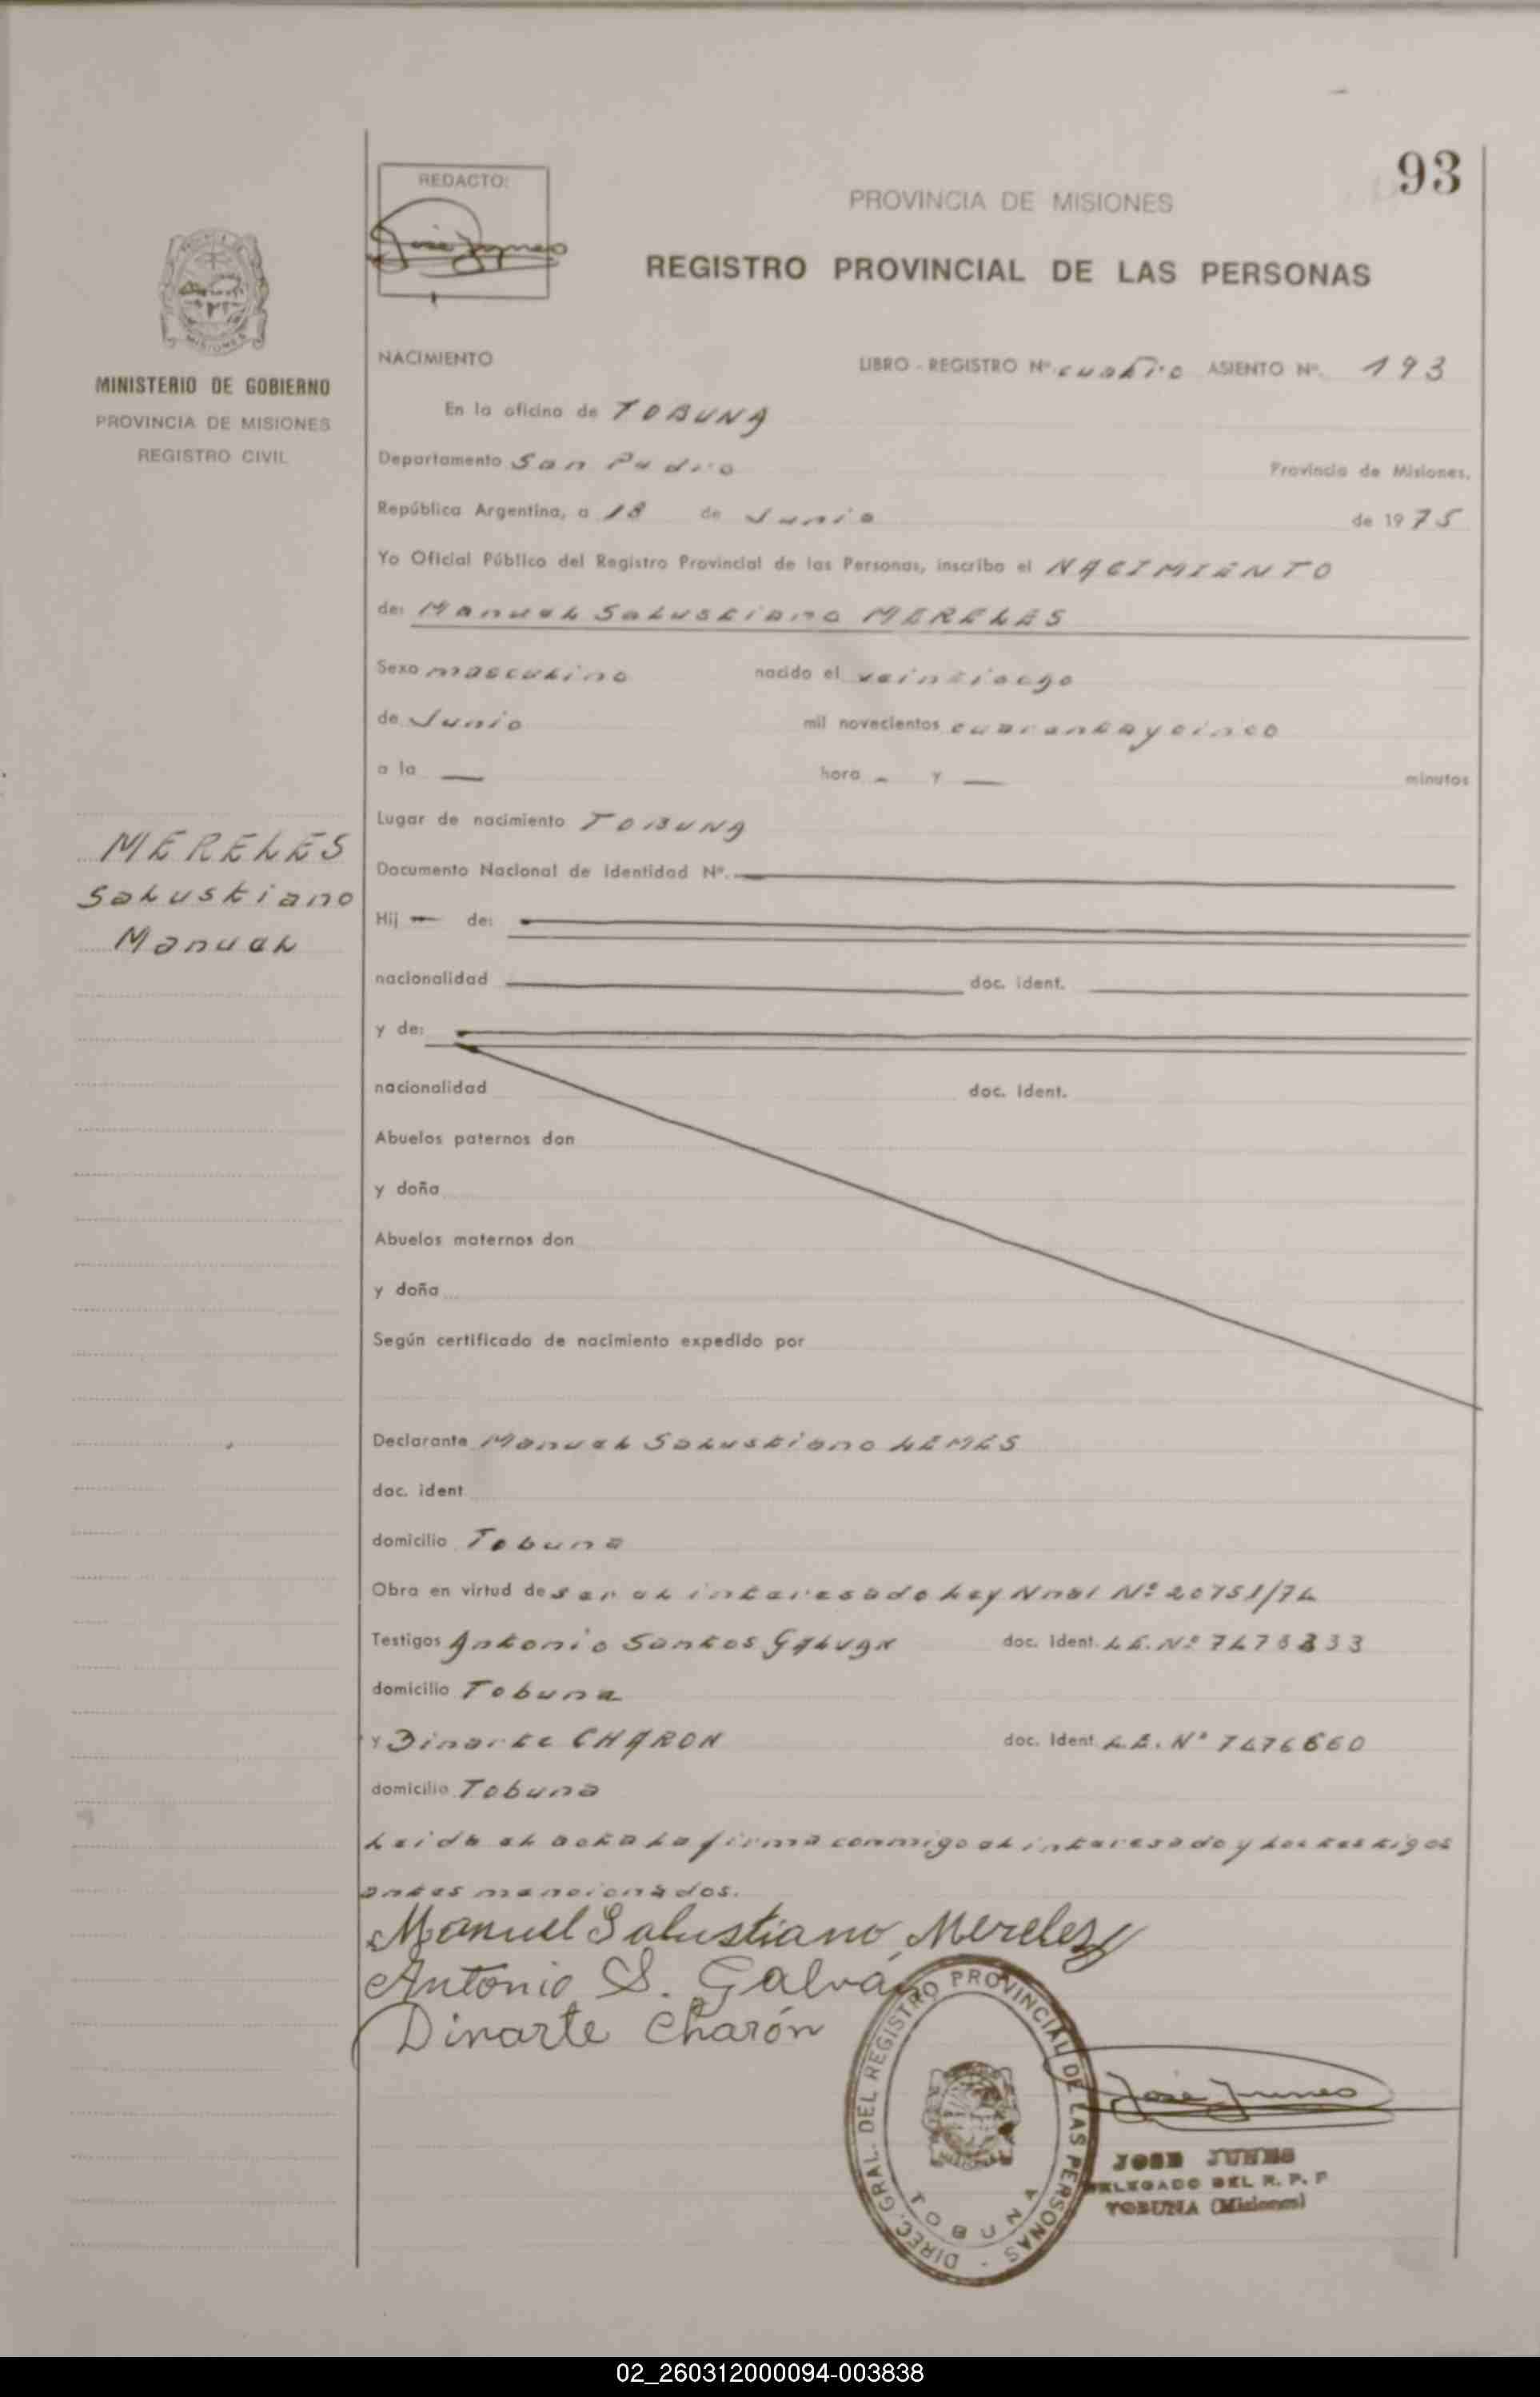 93
REDACTO:
José Junes
PROVINCIA DE MISIONES
REGISTRO PROVINCIAL DE LAS PERSONAS
MISIONES
MINISTERIO DE GOBIERNO
PROVINCIA DE MISIONES
REGISTRO CIVIL
NACIMIENTO LIBRO - REGISTRO Nº cuatro ASIENTO Nº. 193
En la oficina de TOBUNA
Departamento San Pedro Provincia de Misiones.
República Argentina, a 18 de Junio de 1975
Yo Oficial Público del Registro Provincial de las Personas, inscribo el NACIMIENTO
de: Manuel Salustiano MERELES
Sexo masculino nacido el veintiocgo
de Junio mil novecientos cuarentaycinco
a la — hora - y — minutos
Lugar de nacimiento TOBUNA
MERELES
Salustiano
Manuel
Documento Nacional de Identidad Nº.
Hij — de:
nacionalidad doc. ident.
y de:
nacionalidad doc. ident.
Abuelos paternos don
y doña
Abuelos maternos don
y doña
Según certificado de nacimiento expedido por
Declarante Manuel Salustiano LEMES
doc. ident.
domicilio Tobuna
Obra en virtud de ser el interesado Ley Nnal Nº 20751/74
Testigos Antonio Santos GALVAN doc. ident. L.E. Nº
domicilio Tobuna
y Dinarte CHARON doc. ident. L.E. Nº 7476660
domicilio Tobuna
Leida el acta la firma conmigo el interesado y los testigos
antes mencionados.
Manuel Salustiano Mereles
Antonio S. Galván
Dinarte Charón
DIREC. GRAL. DEL REGISTRO PROVINCIAL DE LAS PERSONAS -
TOBUNA
José Junes
JOSE JUNES
DELEGADO DEL R. P. P
TOBUNA (Misiones)
02_260312000094-003838